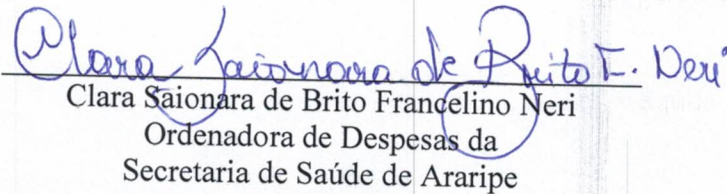 Clara Saionara de Brito F. Neri
Clara Saionara de Brito Francelino Neri
Ordenadora de Despesas da
Secretaria de Saúde de Araripe